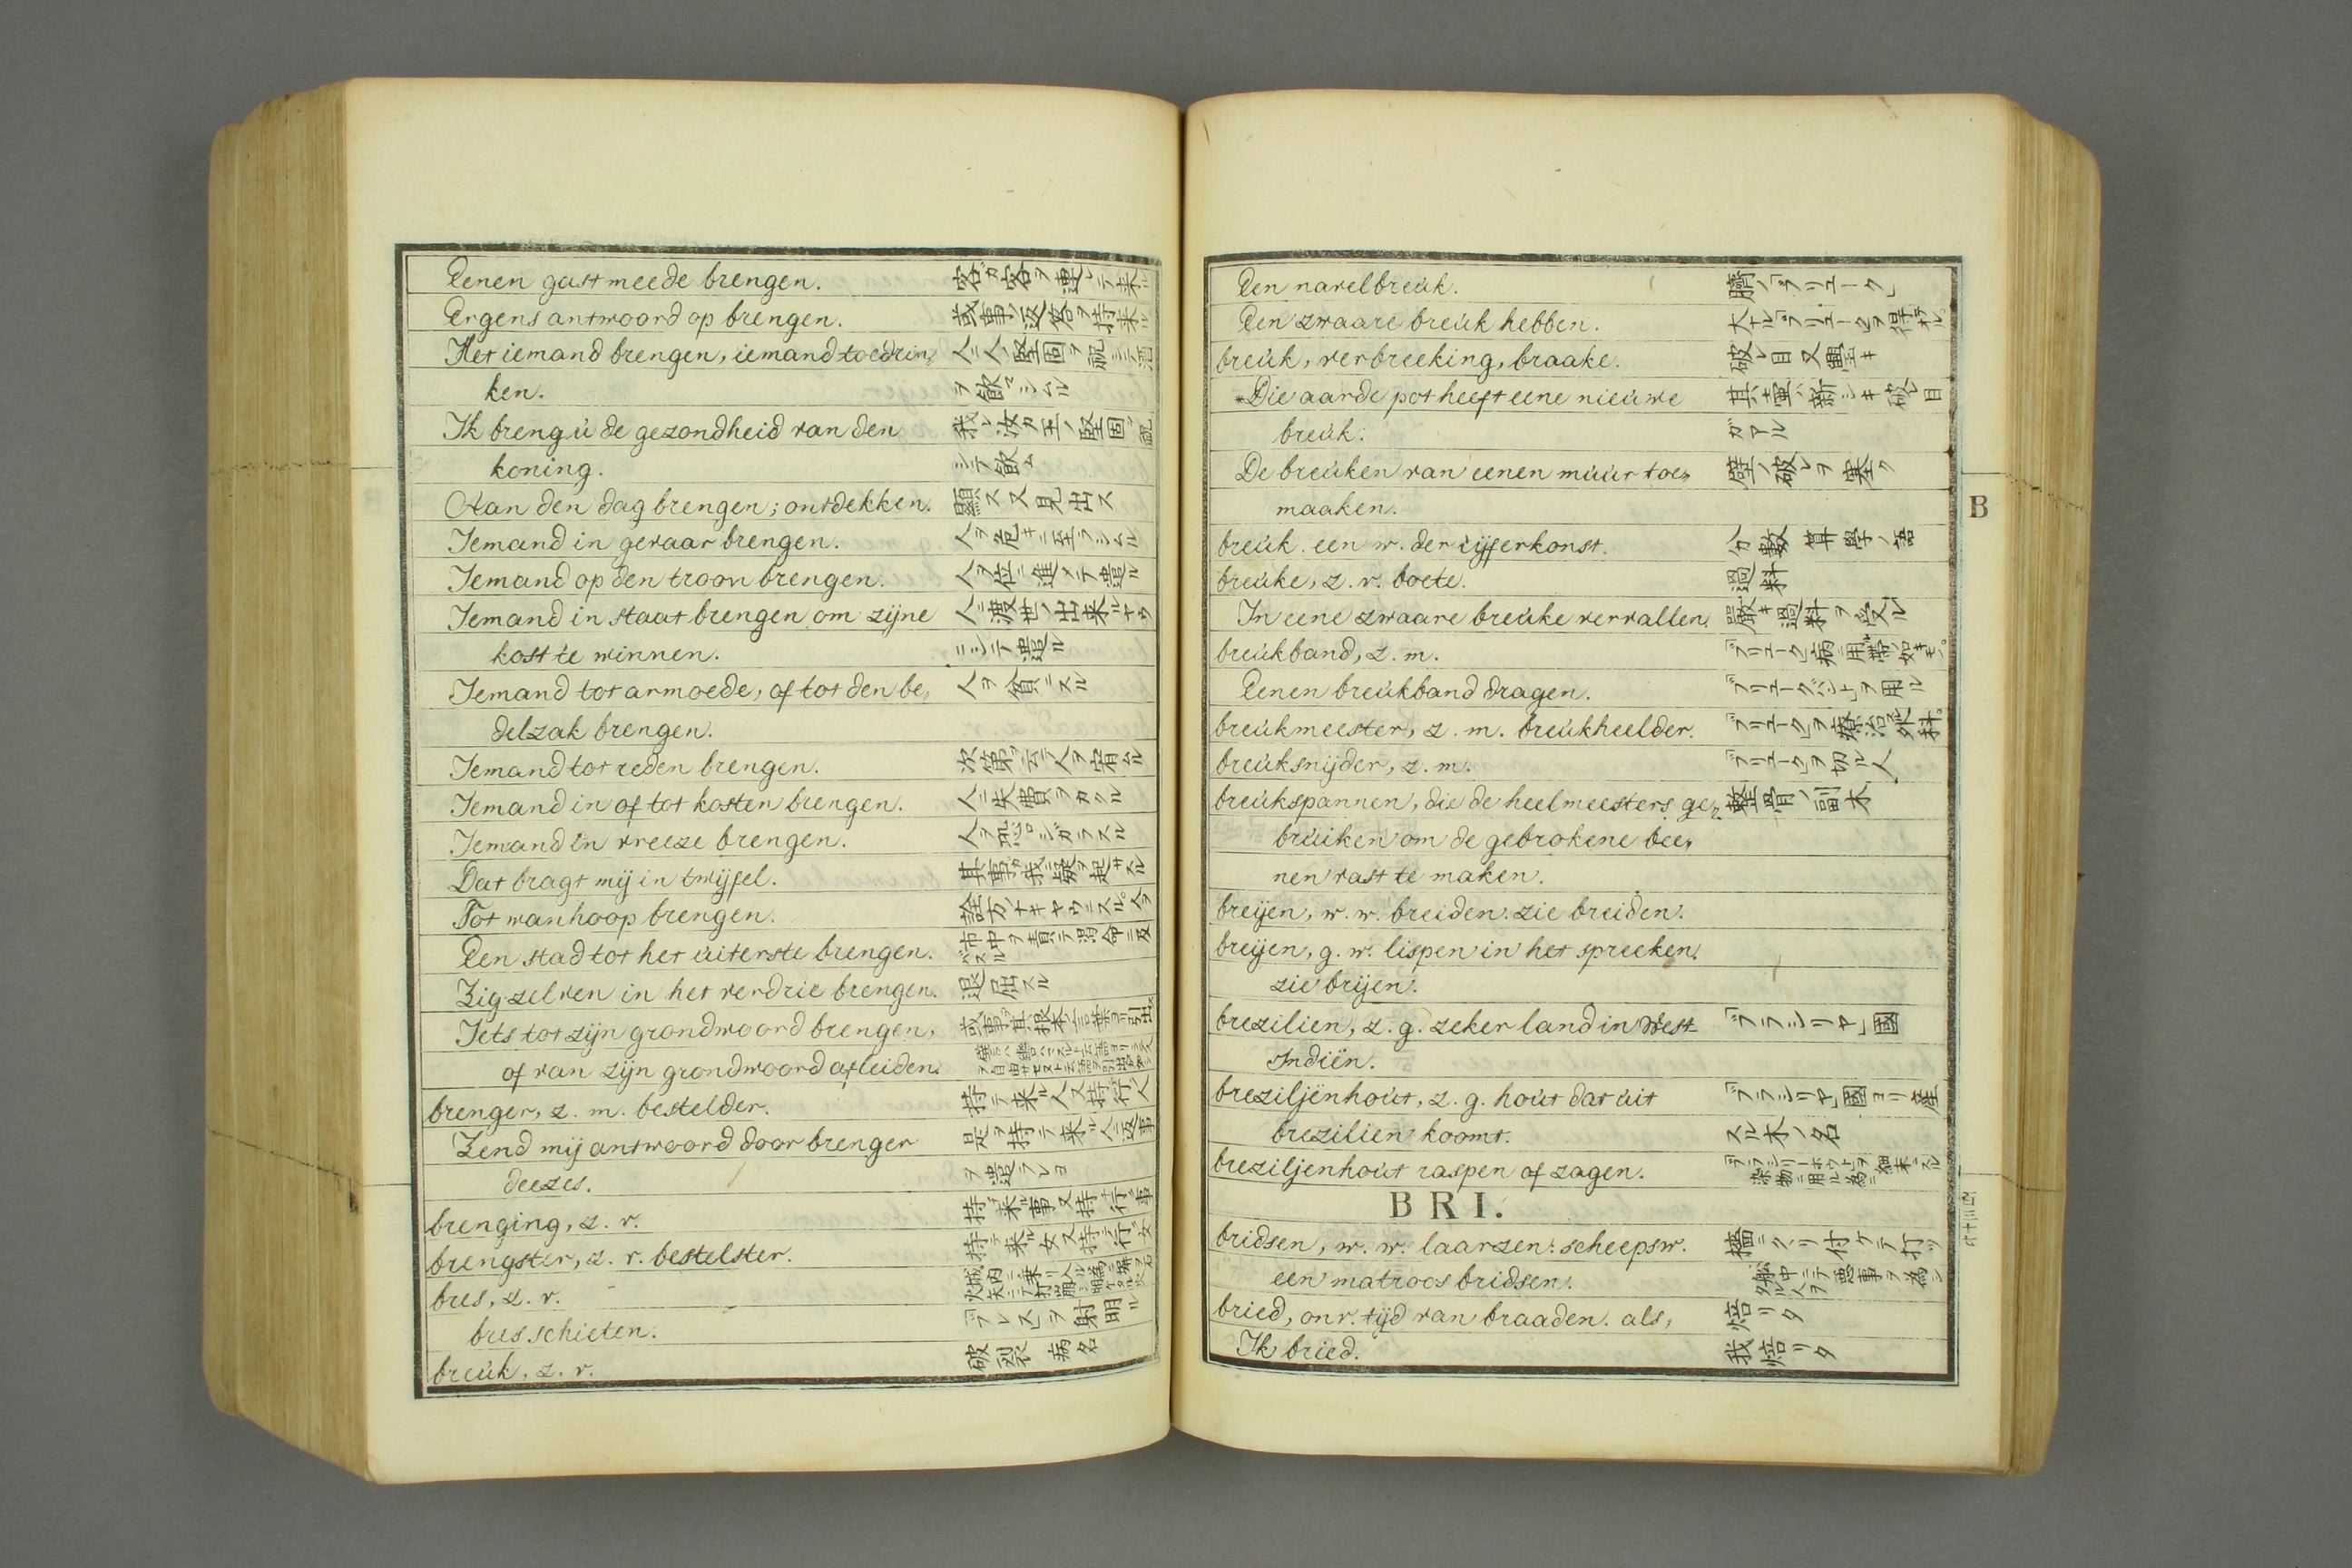 Eenen gast meede brengen. 客ガ客ヲ連レテ来ル
Ergens antwoord op brengen. 或事ノ返答ヲ持来ル
Het iemand brengen, iemand toedrin„ 人ニ人ノ堅固ヲ祝シテ酒
ken. ヲ飲マシムル
Ik breng ú de gezondheid van den 我レ汝カ王ノ堅固ヲ祝
koning. シテ飲ム
Aan den dag brengen; ontdekken. 顕ス又見出ス
Iemand in gevaar brengen. 人ヲ危キニ至ラシムル
Iemand op den troon brengen. 人ヲ位ニ進メテ遣ル
Iemand in staat brengen om zijne 人ニ渡世ノ出来ルヤウ
kost te winnen. ニシテ遣ル
Iemand tot armoede, of tot den be„ 人ヲ貧ニスル
delzak brengen.
Iemand tot reden brengen. 次第ヲ云テ人ヲ宥ムル
Iemand in of tot kosten brengen. 人ニ失費ヲカクル
Iemand in vreeze brengen. 人ヲ恐ロシガラスル
Dat bragt mij in twijfel. 其事ガ我ニ疑ヲ起サスル
Tot wanhoop brengen. 詮方ナキヤウニスル
Een stad tot het úiterste brengen. 市中ヲ責テ
Zig zelven in het verdrie brengen. 退屈スル
Iets tot zijn grondwoord brengen, 或事ヲ其根本ノ言葉ヨリ引出ス
of van zijn grondwoord afleiden.
brenger, z. m. bestelder. 持テ来ル人又持行ク人
Zend mij antwoord door brenger 是ヲ持テ来ル人ニ返事
deezes. ヲ遣ラレヨ
brenging, z. v. 持テ来ル事又持テ行ク事
brengster, z. v. bestelster. 持テ来ル女又持テ行ク女
bres, z. v.
bres schieten. 「ブレス」ヲ射明ル
breúk, z. v. 破裂 病名
Een navelbreúk. 臍ノ「ブリューク」
Een zwaare breúk hebben. 大ナル「ブリューク」ヲ得テヲル。
breúk, verbreeking, braake. 破レ目又璺キ
Die aarde pot heeft eene nieúwe 其土壷ハ新シキ破レ目
breúk. ガアル
De breúken van eenen múúr toe„ 壁ノ破レヲ塞ク
maaken.
B
breúk. een w. der cijfferkonst. 分數 算學ノ語
breúke, z. v. boete. 過料
In eene zwaare breúke vervallen. 嚴キ過料ヲ受ル
breúkband, z. m. 「ブリューク」病ニ用ル帯ノ如キモノ。
Eenen breúkband dragen. 「ブリュークバンド」ヲ用ル
breúkmeester, z. m. breúkheelder. 「ブリューク」ヲ療治スル外科。
breúksnijder, z. m. 「ブリューク」ヲ切ル人
breúkspannen, die de heelmeesters ge„ 整骨ノ副木
brúiken om de gebrokene bee„
nen vast te maken.
breijen, w. w. breiden. zie breiden.
breijen, g. w. lispen in het spreeken.
zie brijen.
brezilien, z. g. zeker land in West „ブラシリヤ」國
Indiën.
breziljënhoút, z. g. hoút dat úit „ブラシリヤ」國ヨリ産
brezilien koomt. スル木ノ名
breziljenhoút raspen of zagen. 「ブラシリーホウト」ヲ細末ニスル 染物ニ用ル為ニ
BRI.
bridsen, w. w. laarzen. scheepsw. 檣ニクヽリ付ケテ打ツ
een matroos bridsen. 舩中ニテ悪事ヲ為シタル人ヲ
bried, onv. tijd van braaden. als, 焙リタ
Ik bried. 我焙リタ